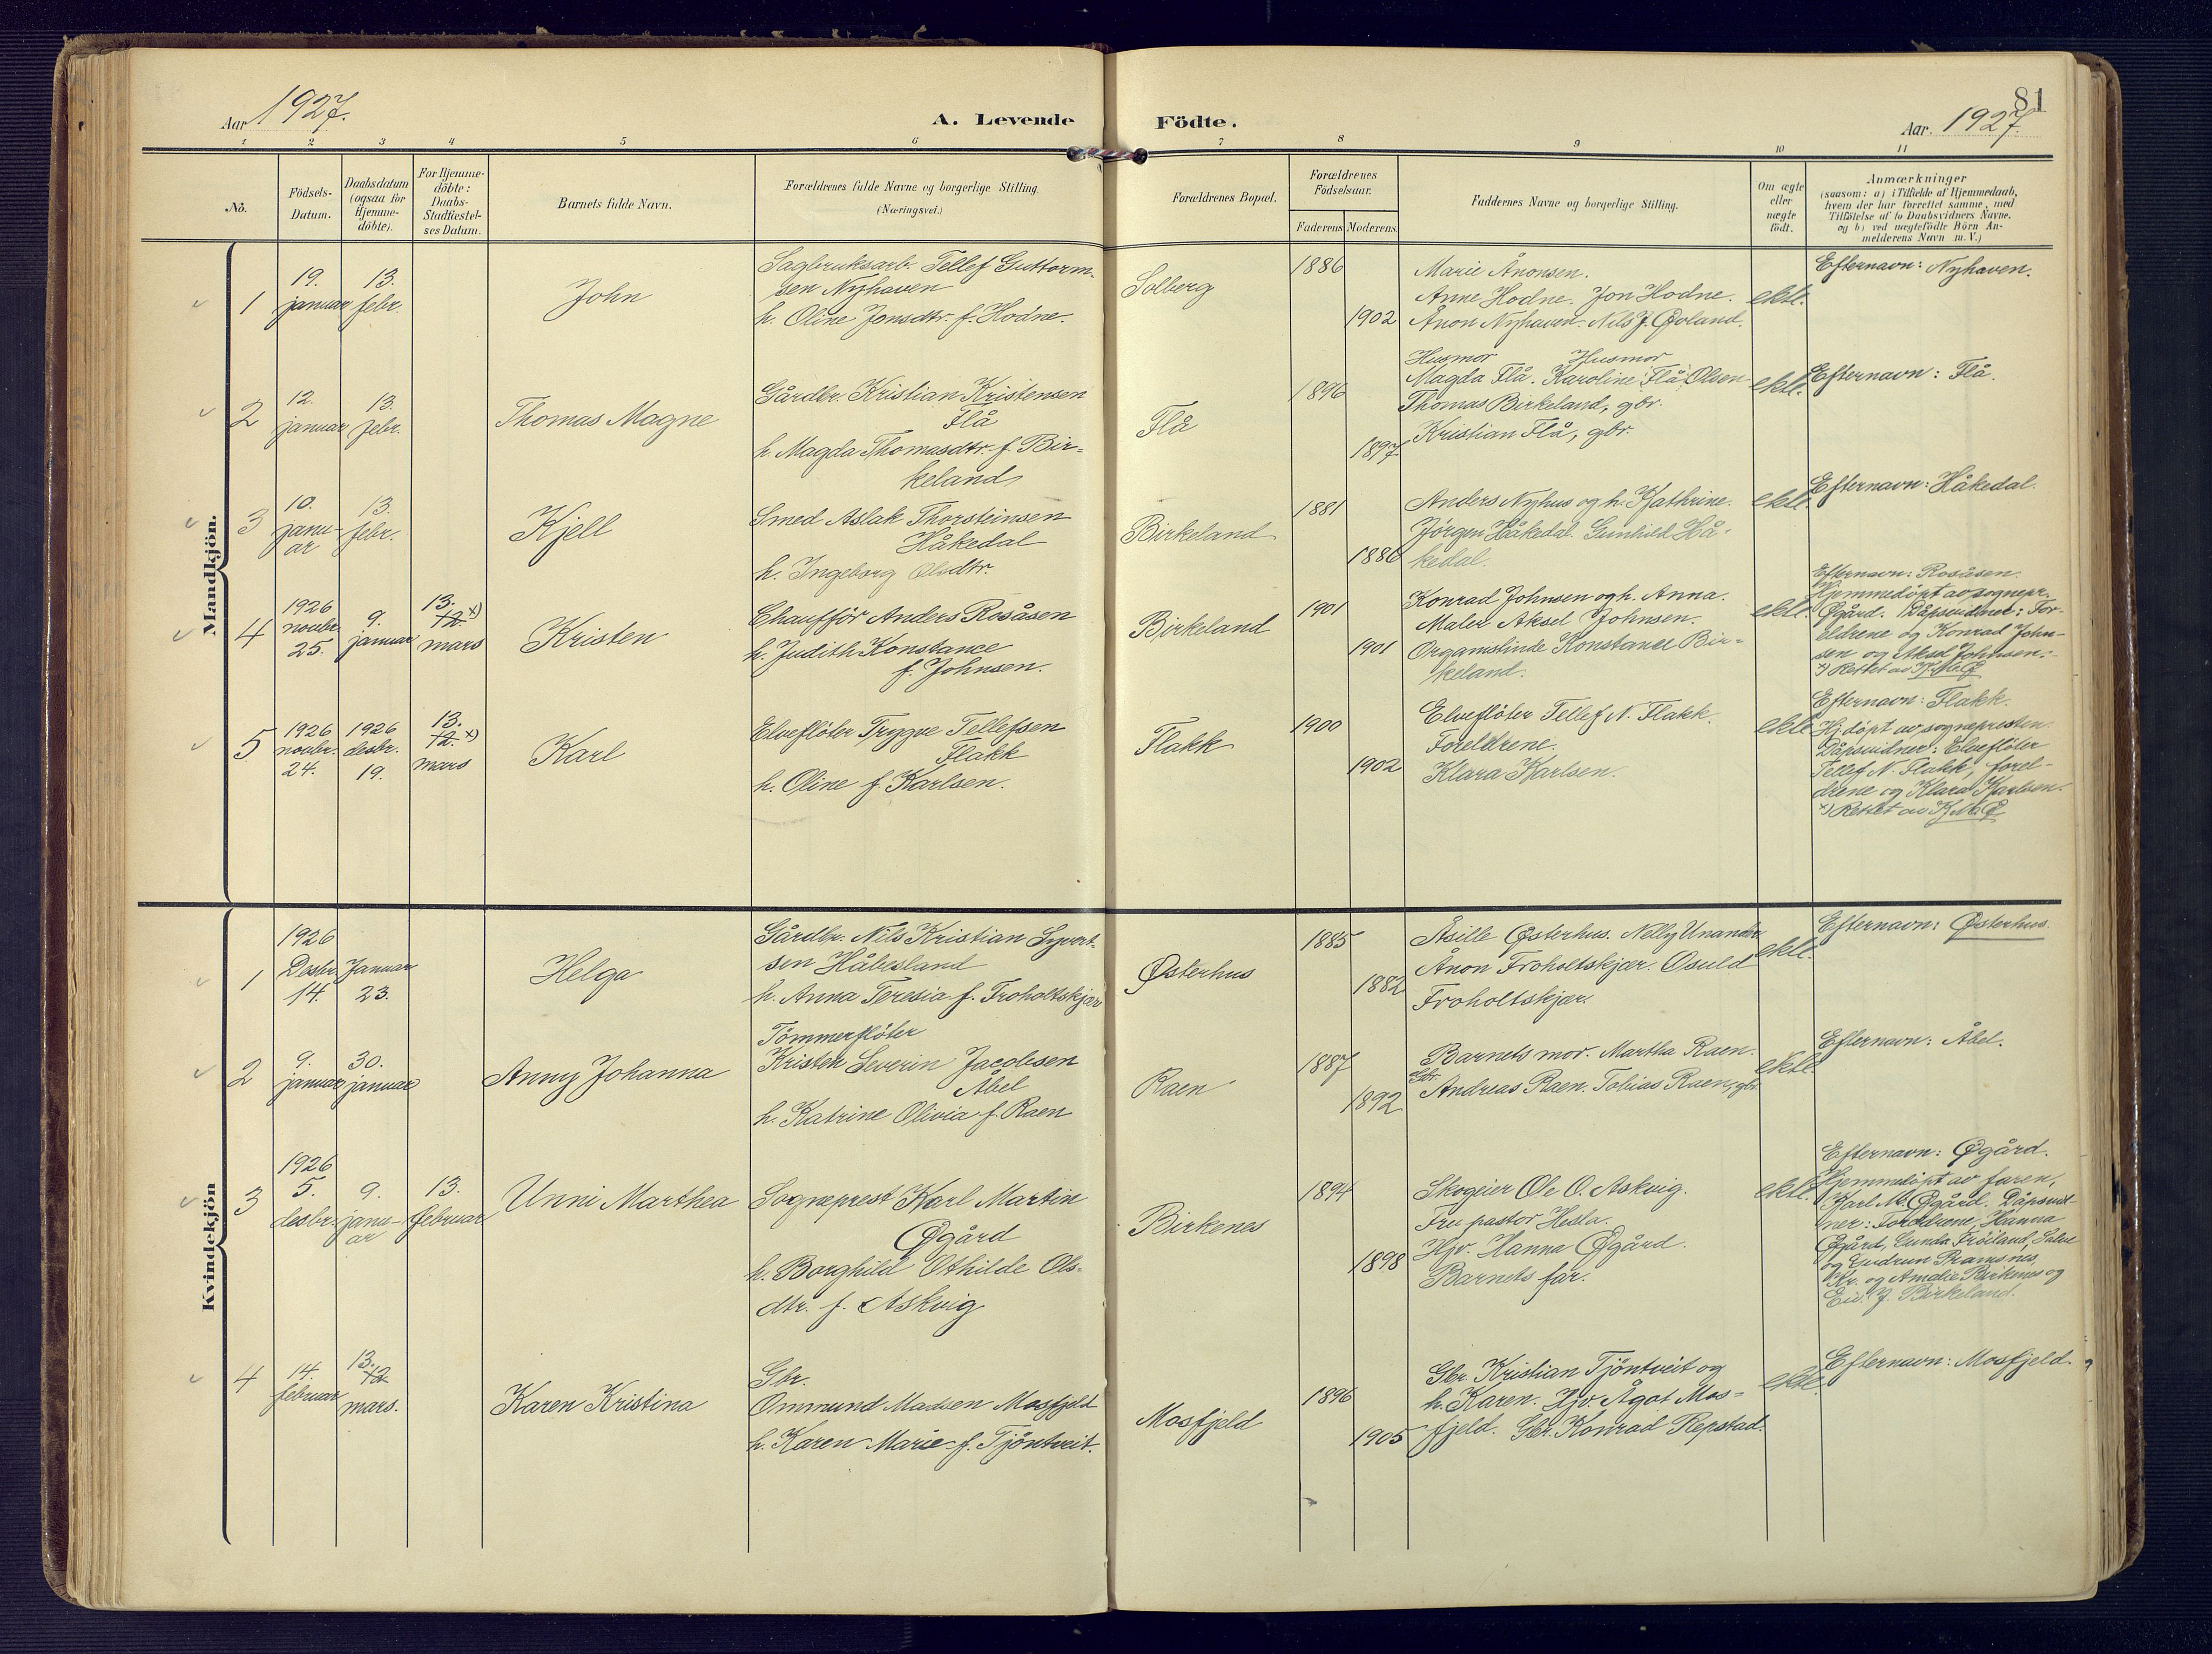 Aar 1927.
A. Levende Födte.
81
Aar. 1927.
1 2 3 4 5 6 7 8 9 10 11
Nô.
Födsels-
Datum.
Daabsdatum
(ogsaa for
Hjemme-
döbte).
For Hjemme-
döbte:
Daabs-
Stadfæstel-
ses Datum.
Barnets fulde Navn.
Forældrenes fulde Navne og borgerlige Stilling.
(Næringsvei.)
Forældrenes Bopæl.
Forældrenes
Födselsaar.
Faderens Moderens
Faddernes Navne og borgerlige Stilling.
Om ægte
eller
uægte
födt.
Anmærkninger
(saasom: a) i Tilfælde af Hjemmedaab,
hvem der har forrettet samme, med
Tilföielse af to Daabsvidners Navne.
og b) ved uægtefödte Börn An-
melderens Navn m. V.)
Mandkjön.
1
19.
januar
13.
febr.
John
Sagbruksarb. Tellef Guttorm-
sen Nyhaven
h. Oline Jonsdtr. f. Hodne.
Solberg
1886
1902
Marie Ånonsen.
Anne Hodne. Jon Hodne.
Ånon Nyhaven. Nils J. Øvland.
ekte.
Efternavn: Nyhaven.
2
12.
januar
13.
febr.
Thomas Magne
Gårdbr. Kristian Kristensen
Flå
h. Magda Thomasdtr. f. Bir-
keland
Flå
1896
1897
Husmor Husmor
Magda Flå. Karoline Flå Olsen
Thomas Birkeland, gbr.
Kristian Flå, gbr.
ekte.
Efternavn: Flå.
3
10.
janu-
ar
13.
febr.
Kjell
Smed Aslak Thorsteinsen
Håkedal
h. Ingeborg Olsdtr.
Birkeland
1881
1886
Anders Nyhus og h. Kathrine.
Jörgen Håkedal. Gunhild Hå-
kedal.
ekte.
Efternavn: Håkedal.
4
1926
novbr.
25.
9.
januar
13.
12 x)
mars
Kristen
Chaufför Anders Rosåsen
h. Judith Konstance
f. Johnsen.
Birkeland
1901
1901
Konrad Johnsen og h. Anna.
Maler Aksel Johnsen.
Organistinde Konstance Bir-
keland.
ekte.
Efternavn: Rosåsen.
Hjemmedöpt av sognepr.
Øgård. Dåpsvidner: For-
eldrene og Konrad John-
sen og Aksel Johnsen.
x) Rettet av K.M.Ø
5
1926
novbr.
24.
1926
desbr.
19.
13.
12. x)
mars
Karl
Elveflöter Trygve Tellefsen
Flakk
h. Oline f. Karlsen.
Flakk
1900
1902
Elveflöter Tellef N. Flakk.
Foreldrene.
Klara Karlsen.
ekte
Efternavn: Flakk.
Hj.döpt av sognepresten.
Dåpsvidner: Elveflöter
Tellef N. Flakk, forel-
drene og Klara Karlsen.
x) Rettet av K.M.Ø
Kvindekjön
1
1926
Desbr.
14.
Januar
23.
Helga
Gårdbr. Nils Kristian Syvert-
sen Håbesland
h. Anna Teresia f. Froholtskjær
Østerhus
1885
1882
Åsille Østerhus. Nelly Unander
Ånon Froholtskjær. Osuld
Froholtskjær.
ekte.
Efternavn: Østerhus.
2
9.
januar
30.
januar
Anny Johanna
Tömmerflöter
Kristen Severin Jacobsen
Åbel
h. Katrine Olivia f. Raen
Raen
1887
1892
Barnets mor. Martha Raen.
Gbr.
Andreas Raen. Tobias Raen, gbr.
ekte.
Efternavn: Åbel.
3
1926
5.
desbr.
9.
janu-
ar
13.
februar
Unni Marthea
Sogneprest Karl Martin
Øgård
h. Borghild Othilde Ols-
dtr. f. Askvig
Birkenes
1894
1898
Skogeier Ole O. Askvig.
Fru pastor Hesla.
Hjv. Hanna Øgård.
Barnets far.
ekte.
Efternavn: Øgård.
Hjemmedöpt av faren,
Karl M. Øgård. Dåpsvid-
ner: Foreldrene, Hanna
Øgård, Gunda Fröiland,
og Gudrun
Kr. og Amalie Birkenes og
J. Birkeland.
4
14.
februar
13.
12
mars.
Karen Kristina
Gbr.
Ommund Madsen Mosfjeld
h. Karen Marie f. Tjöntveit.
Mosfjeld
1896
1905
Gbr. Kristian Tjöntveit og
h. Karen. Hjv. Ågot Mos-
fjeld. Gbr. Konrad Repstad.
ekte.
Efternavn: Mosfjeld.